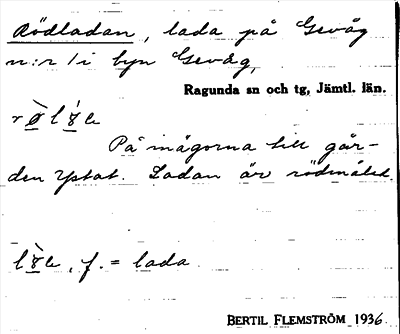 Rödladan, lada på Gevåg
n:r 1 i byn Gevåg,
Ragunda sn och tg, Jämtl. län.
På mågorna till går-
den Ystat. Ladan är rödmålad.
f. = lada
BERTIL FLEMSTRÖM 1936.